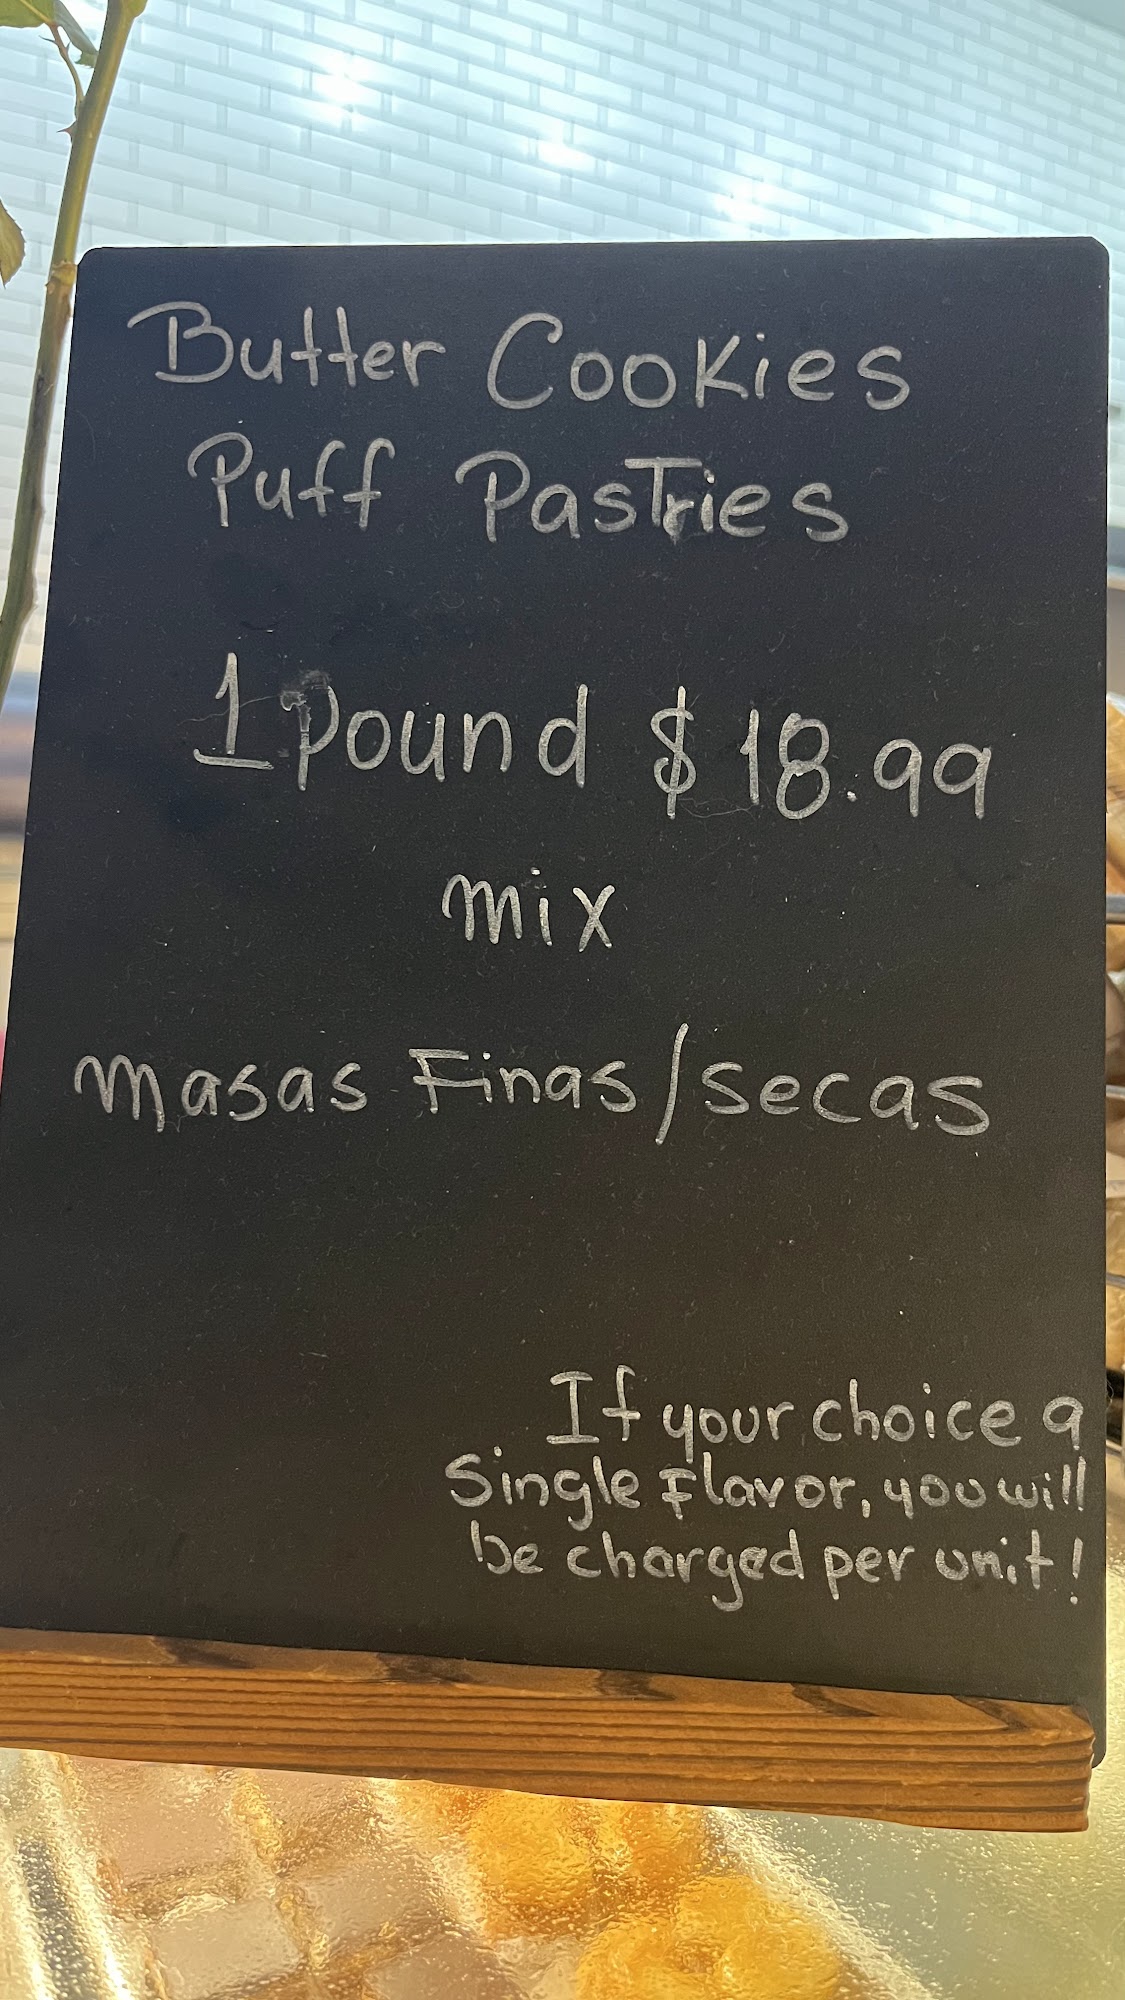 Butter Cookies
Puff Pastries
1 Pound $18.99
mix
masas Finas/secas
If your choice a
Single Flavor, you will
be charged per unit!